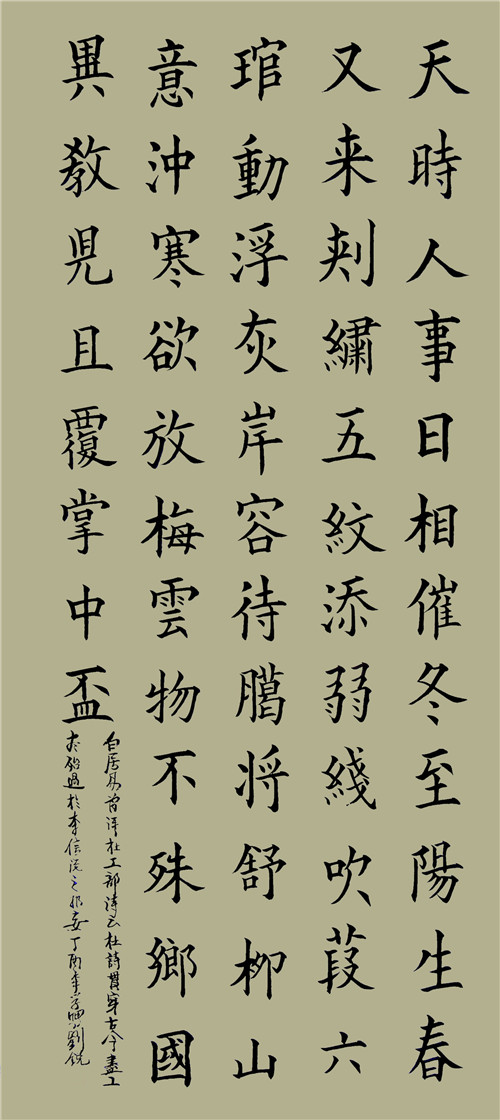 天時人事日相催冬至陽生春
又来刾繡五紋添弱綫吹葭六
琯動浮灰岸容待臈将舒柳山
意沖寒欲放梅雲物不殊鄉國
異教児且覆掌中盃
白居易曾評杜工部詩云杜詩貫穿古今盡工
過於李信說之非妄丁酉劉銳